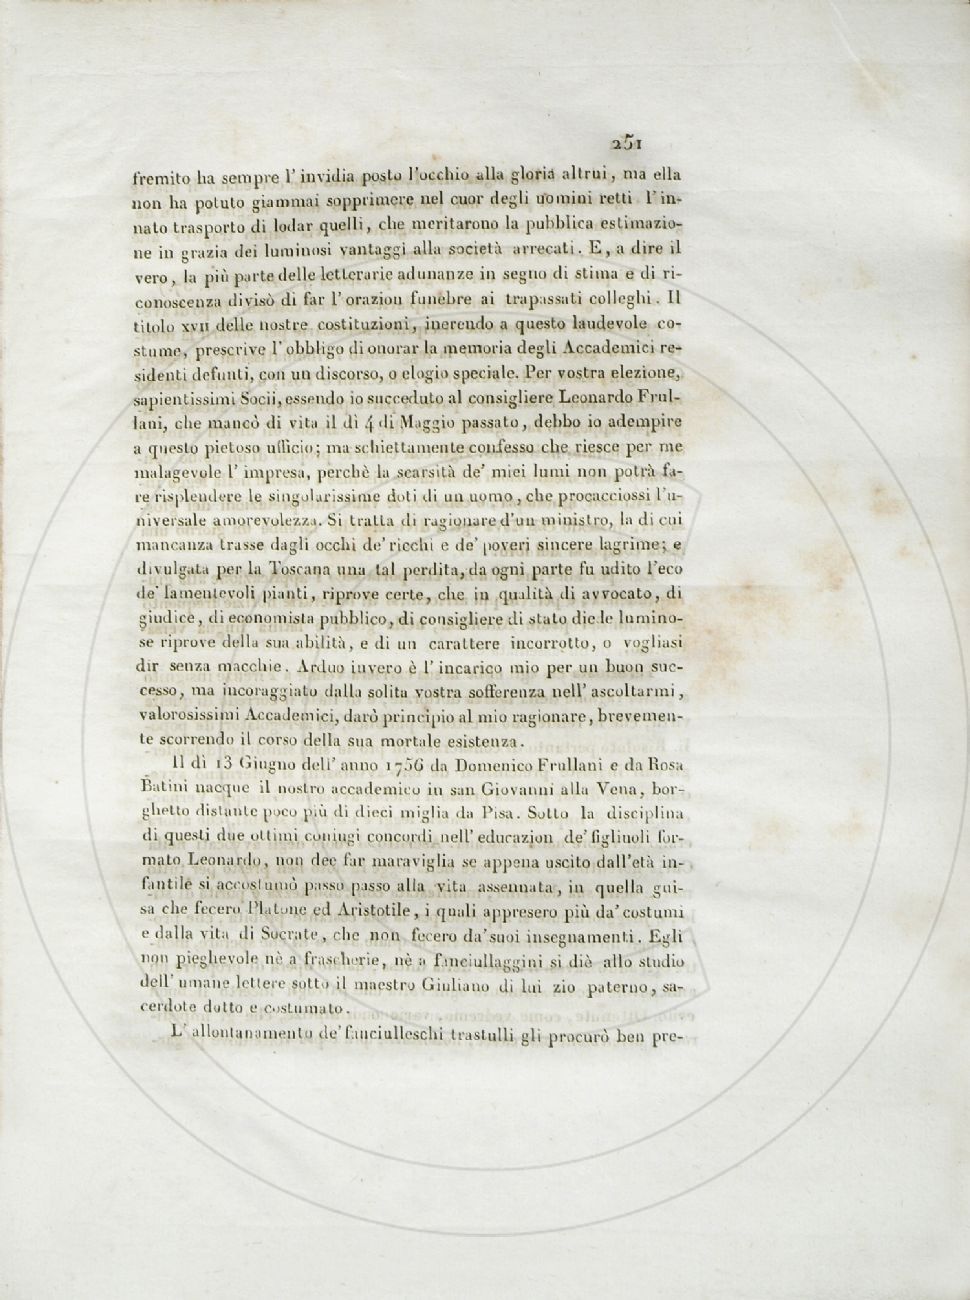 251
fremito ha sempre l' invidia posto l'occhio alla gloria altrui, ma ella
non ha potuto giammai sopprimere nel cuor degli uomini retti l' in-
nato trasporto di lodar quelli, che meritarono la pubblica estimazio-
ne in grazia dei luminosi vantaggi alla società arrecati. E, a dire il
vero, la più parte delle letterarie adunanze in segno di stima e di ri-
conoscenza divisò di far l' orazion funebre ai trapassati colleghi. Il
titolo XVII delle nostre costituzioni, inerendo a questo laudevole co-
stume, prescrive l' obbligo di onorar la memoria degli Accademici re-
sidenti defunti, con un discorso, o elogio speciale. Per vostra elezione,
sapientissimi Socii, essendo io succeduto al consigliere Leonardo Frul-
lani, che mancò di vita il dì 4 di Maggio passato, debbo io adempire
a questo pietoso ufficio; ma schiettamente confesso che riesce per me
malagevole l' impresa, perchè la scarsità de' miei lumi non potrà fa-
re risplendere le singolarissime doti di un uomo, che procacciossi l'u-
niversale amorevolezza. Si tratta di ragionare d'un ministro, la di cui
mancanza trasse dagli occhi de' ricchi e de' poveri sincere lagrime; e
divulgata per la Toscana una tal perdita, da ogni parte fu udito l'eco
de' lamentevoli pianti, riprove certe, che in qualità di avvocato, di
giudice, di economista pubblico, di consigliere di stato die le lumino-
se riprove della sua abilità, e di un carattere incorrotto, o vogliasi
dir senza macchie. Arduo invero è l' incarico mio per un buon suc-
cesso, ma incoraggiato dalla solita vostra sofferenza nell' ascoltarmi,
valorosissimi Accademici, darò principio al mio ragionare, brevemen-
te scorrendo il corso della sua mortale esistenza.
Il dì 13 Giugno dell' anno 1756 da Domenico Frullani e da Rosa
Batini nacque il nostro accademico in san Giovanni alla Vena, bor-
ghetto distante poco più di dieci miglia da Pisa. Sotto la disciplina
di questi due ottimi coniugi concordi nell' educazion de' figliuoli for-
mato Leonardo, non dee far maraviglia se appena uscito dall'età in-
fantile si accostumò passo passo alla vita assennata, in quella gui-
sa che fecero Platone ed Aristotile, i quali appresero più da' costumi
e dalla vita di Socrate, che non fecero da' suoi insegnamenti. Egli
non pieghevole nè a frascherie, nè a fanciullaggini si diè allo studio
dell' umane lettere sotto il maestro Giuliano di lui zio paterno, sa-
cerdote dotto e costumato.
L' allontanamento de' fanciulleschi trastulli gli procurò ben pre-